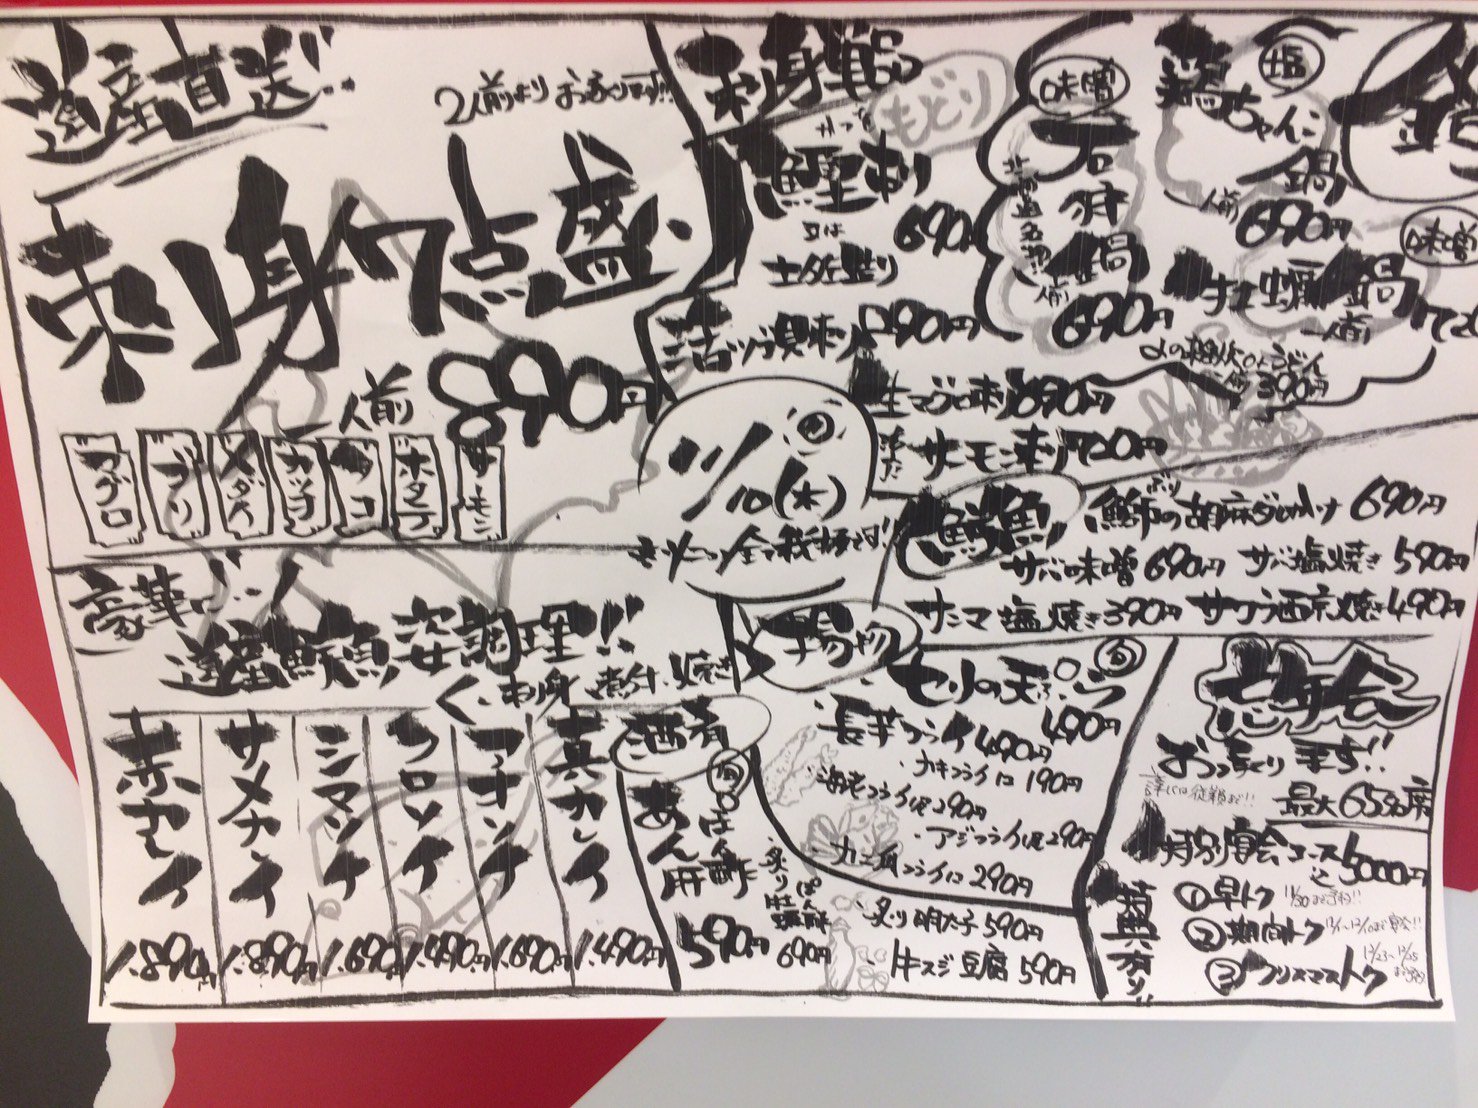 道産直送!!
2人前よりおつくりです!!
刺身7点盛
一人前 890円
マグロ
ブリ
メダイ
カツオ
タコ
ホタテ
サーモン
豪華に!!
道産鮮魚姿調理!!
刺身、煮付、焼き
赤ゾイ 1.890円
サメガイ 1.890円
シマゾイ 1.690円
クロソイ 1.490円
マコガレイ 1.690円
真カレイ 1.490円
刺身貝
もどり
かつを
鰹刺
又は
土佐造り
690円
活ツブ貝刺 890円
生マグロ刺 690円
サーモン刺 720円
11/10(木)
全て税抜です!!
味噌
石狩鍋
北海道名物!!
一人前 690円
塩
鶏ちゃんこ鍋
一人前 690円
味噌
牡蠣鍋
一人前 720
〆の雑炊orうどん
390円
鮮魚
鰤の胡麻だれがけ 690円
サバ味噌 690円
サバ塩焼き 590円
サンマ塩焼き 390円
サワラ西京焼き 490円
揚物
旬
セリの天ぷら 490円
・長芋フライ 490円
・カキフライ1コ 190円
・海老フライ1尾 290円
・アジフライ1尾 290円
・カニ爪フライ1コ 290円
酒肴
旬
あん肝ぽん酢 590円
炙り牡蠣ぽん酢 690円
炙り明太子 590円
牛スジ豆腐 590円
忘年会
おっきくります!!
詳しくは従業員まで!!
最大65名席
特別宴会コース
込 5000円
特典有り!!
①早トク 11/30まで予約!!
②期間トク 12/1~12/10まで宴会!!
③クリスマストク 12/23~12/25